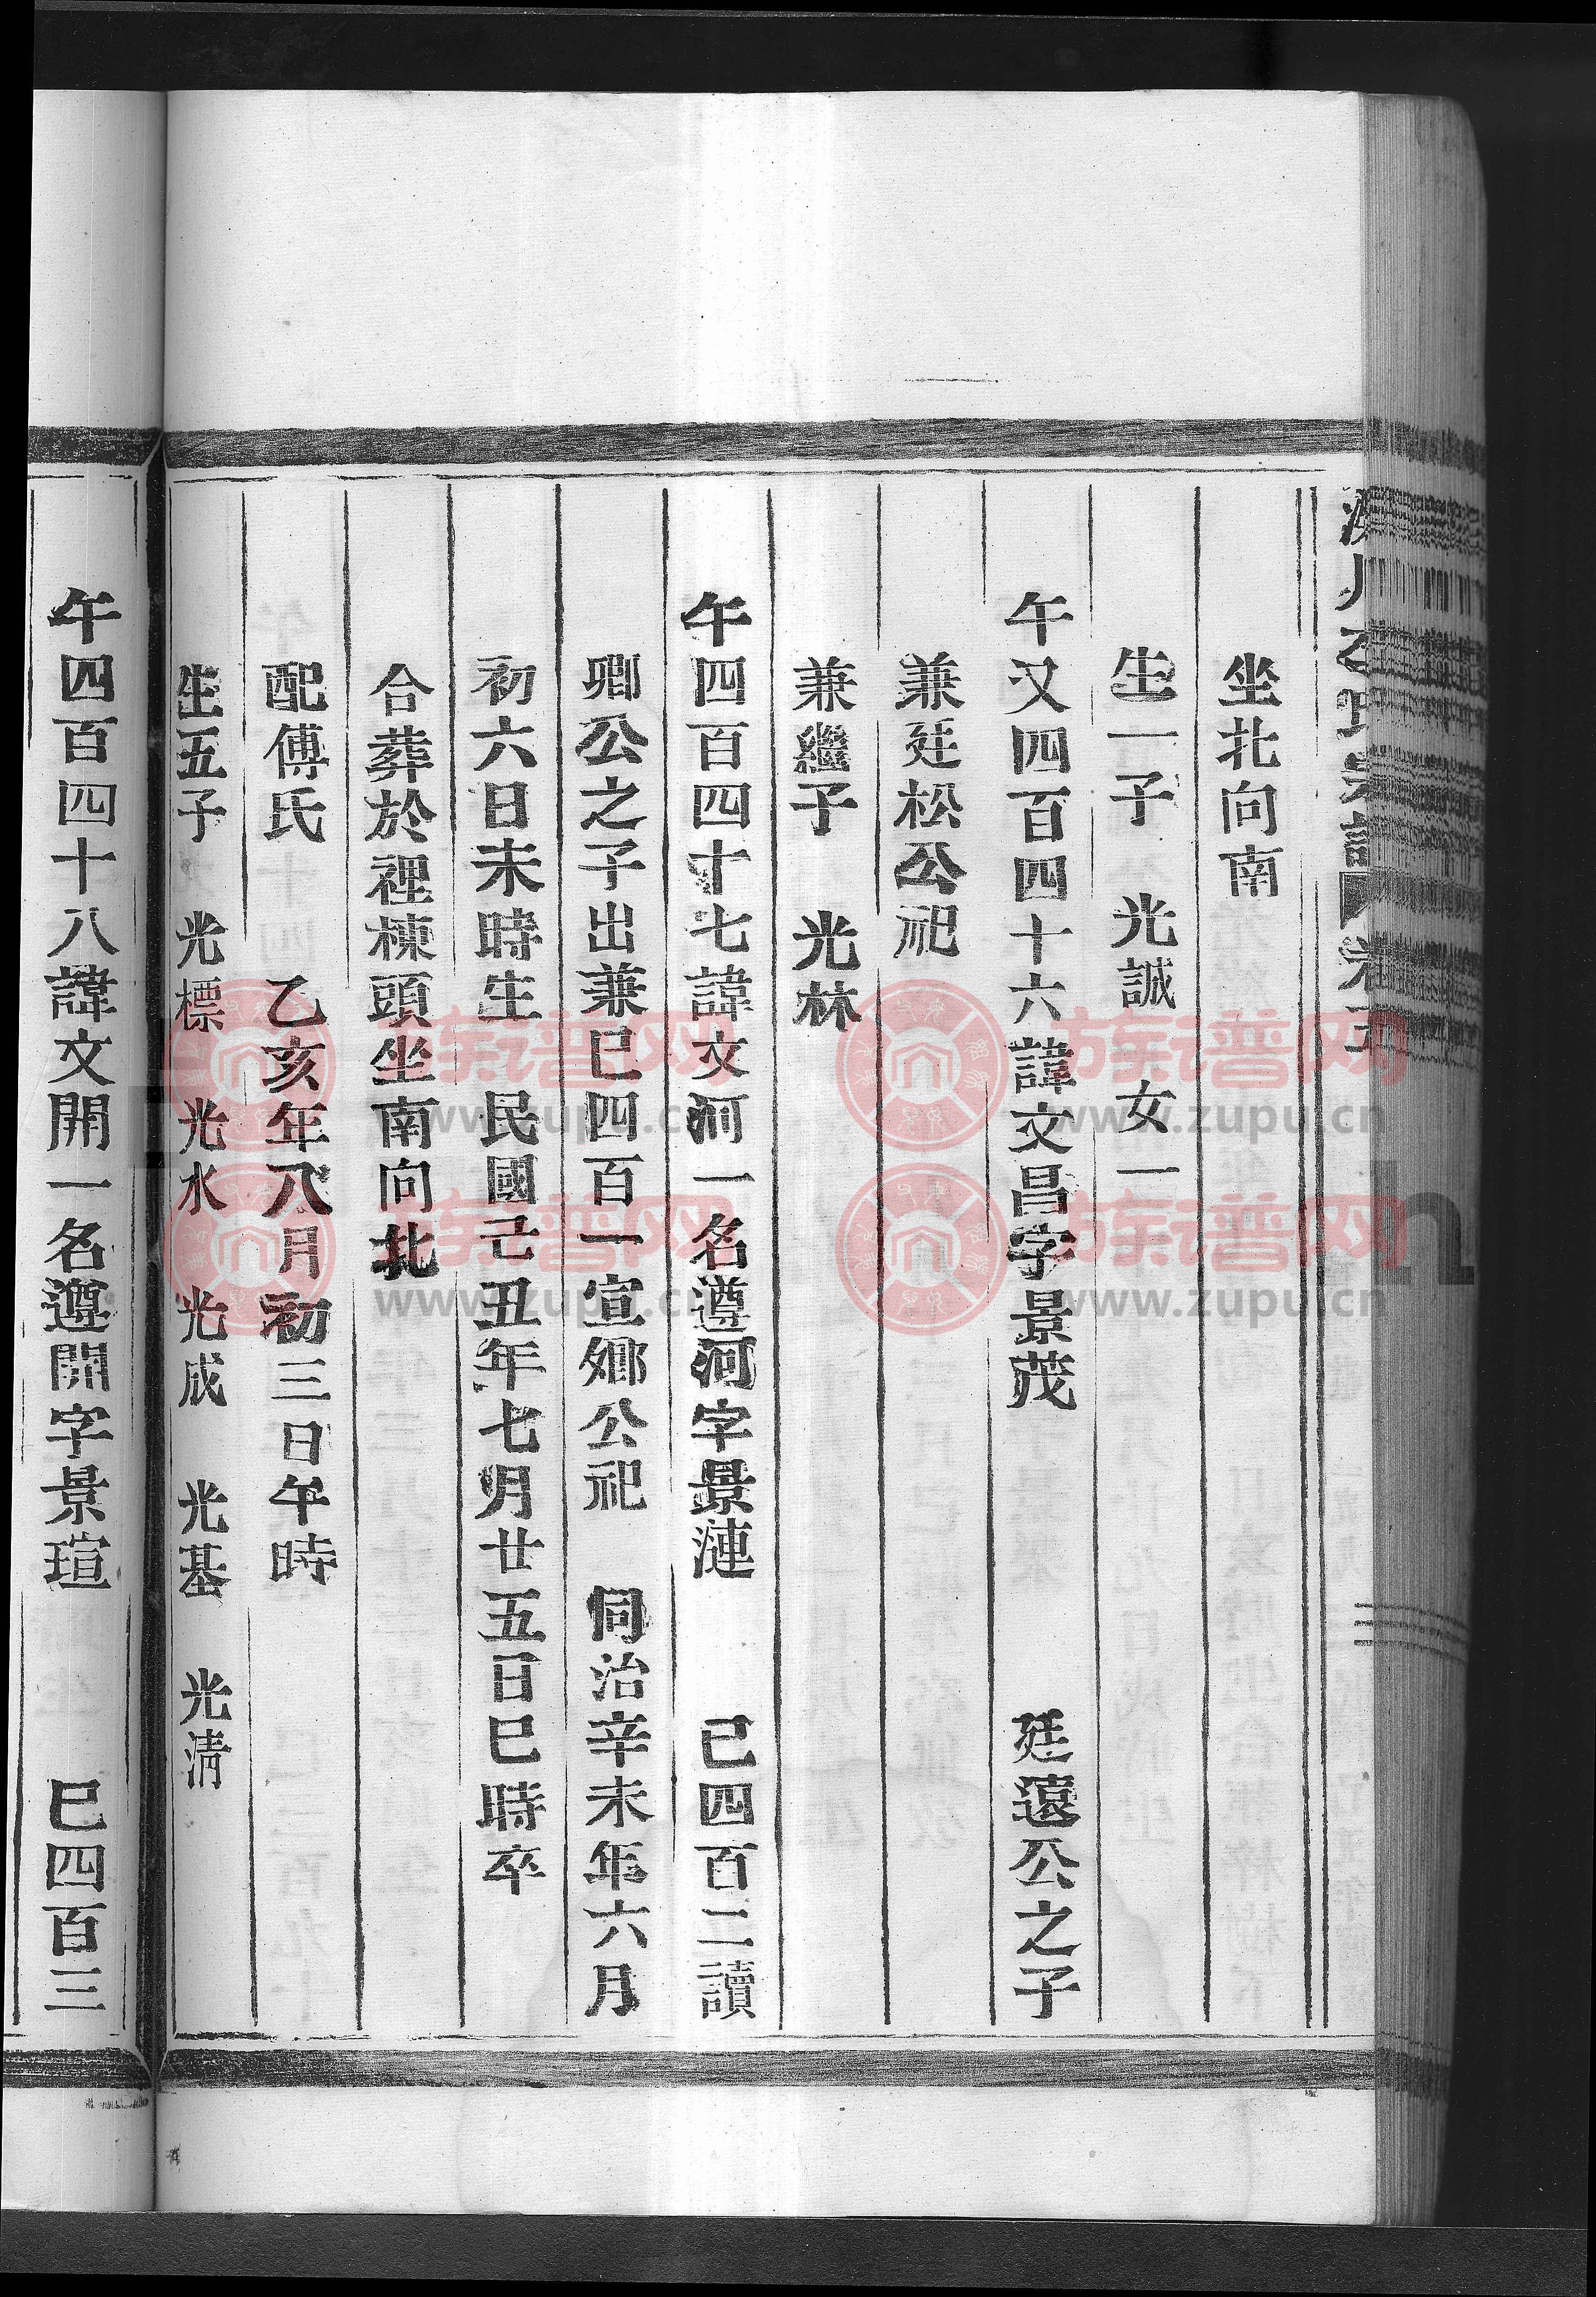 坐北向南
生一子　光誠　女一
午又四百四十六諱文昌字景茂　廷遠公之子
兼廷松公祀
兼繼子　光林
午四百四十七諱文河一名遵河字景漣　巳四百二讀
卿公之子出兼巳四百一宣鄉公祀　同治辛未年六月
初六日未時生　民國己丑年七月廿五日巳時卒
合葬於裡棟頭坐南向北
配傅氏　乙亥年八月初三日午時
生五子　光標　光水　光成　光基　光淸
午四百四十八諱文開一名遵開字景瑄　巳四百三
族谱网
www.zupu.cn
族谱网
www.zupu.cn
族谱网
www.zupu.cn
族谱网
www.zupu.cn